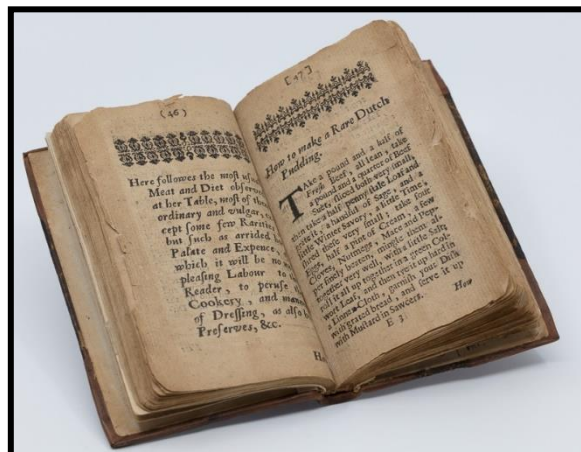 (46)
Here followes the most
Meat and Diet
at her Table, most of
ordinary and vulgar,
cept some few Rarities
but such as arrided
Palate and Expence
which it will be no
pleasing Labour to
Reader, to peruse
Cookery, and
of Dressing, as also
Preserves, &c.
[47]
How to make a Rare Dutch
Pudding.
TAke a pound and a half of
Fresh Beef, all lean, take
a pound and a quarter of Beef
Suet, sliced both very small,
then take a half penny stale Loaf and
grate it, a handful of Sage, and a
little Winter Savory, a little Time,
shred these very small; take four
Eggs, half a pint of Cream, a few
Cloves, Nutmegs, Mace and Pep-
per finely beaten, mingle them all
together very well, with a little Salt;
roll it all up together in a green Col-
wort Leaf, and then tye it up hard in
a Linnen-Cloth, garnish your Dish
with grated bread, and serve it up
with Mustard in Sawcers.
E 3 How